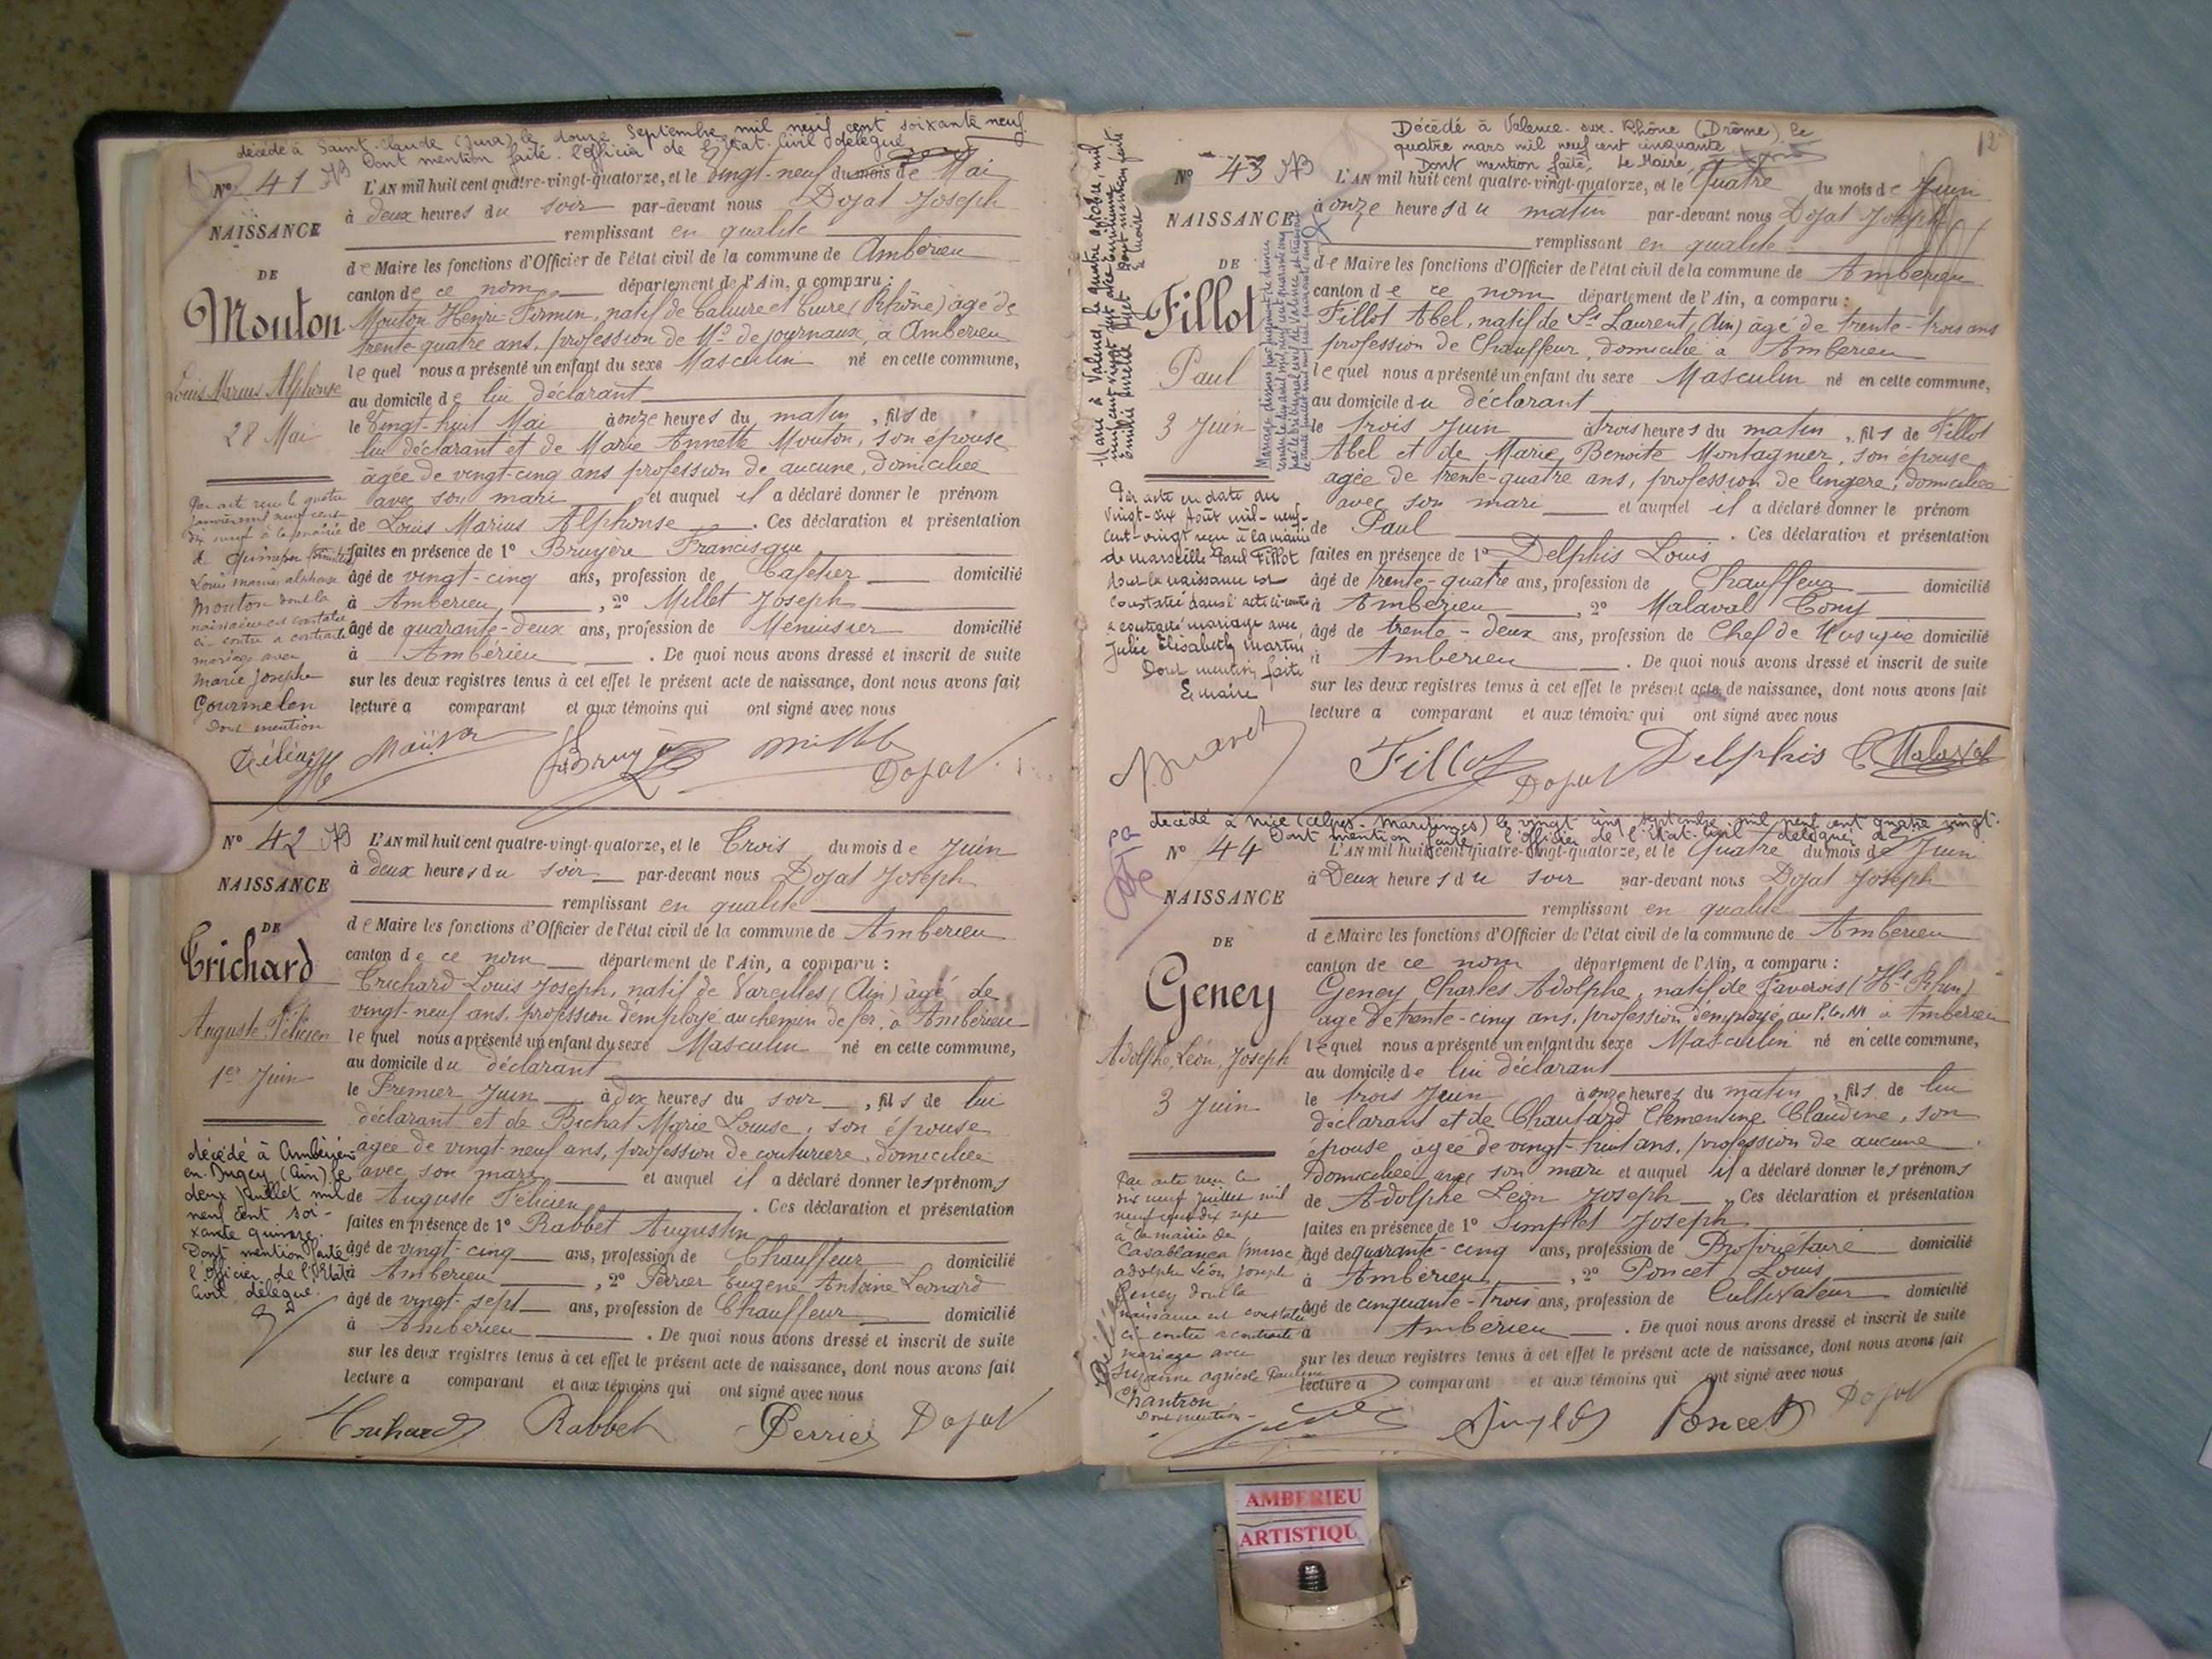 décédé à Saint-Claude (Jura) le douze Septembre mil neuf cent soixante neuf.
Dont mention faite. l'Officier de l'Etat-Civil délégué
N° 41
L'AN mil huit cent quatre-vingt-quatorze, et le Vingt-neuf du mois de Mai
à deux heures du soir par-devant nous Dojat Joseph
NAISSANCE
remplissant en qualité
DE
de Maire les fonctions d'Officier de l'état civil de la commune de Ambérieu
canton de ce nom département de l'Ain, a comparu :
Mouton
Mouton Henri-Firmin, natif de Caluire et Cuire (Rhône) âgé de
trente-quatre ans, profession de Md de journaux, à Ambérieu
lequel nous a présenté un enfant du sexe Masculin né en cette commune,
Louis Marius Alphonse
au domicile de lui déclarant
28 Mai
le Vingt-huit Mai à onze heures du matin, fils de
lui déclarant et de Marie Annette Mouton, son épouse
âgée de vingt-cinq ans profession de aucune, domiciliée
avec son mari et auquel il a déclaré donner le prénom
de Louis Marius Alphonse. Ces déclaration et présentation
faites en présence de 1° Bruyère Francisque
âgé de vingt-cinq ans, profession de Cafetier domicilié
à Ambérieu, 2° Millet Joseph
âgé de quarante-deux ans, profession de Menuisier domicilié
à Ambérieu. De quoi nous avons dressé et inscrit de suite
sur les deux registres tenus à cet effet le présent acte de naissance, dont nous avons fait
lecture a comparant et aux témoins qui ont signé avec nous
Par acte reçu le quatre
janvier mil neuf cent
dix neuf à la mairie
de Quimper
Louis marius alphonse
Mouton dont la
naissance est constatée
ci-contre a contracté
mariage avec
Marie Josèphe
Gourmelen
Dont mention
Mouton Bruyère Millet Dojat
N° 42
L'AN mil huit cent quatre-vingt-quatorze, et le Trois du mois de Juin
à deux heures du soir par-devant nous Dojat Joseph
NAISSANCE
remplissant en qualité
DE
de Maire les fonctions d'Officier de l'état civil de la commune de Ambérieu
canton de ce nom département de l'Ain, a comparu :
Trichard
Trichard Louis Joseph, natif de Vareilles (Ain) âgé de
vingt-neuf ans, profession d'employé au chemin de fer, à Ambérieu
lequel nous a présenté un enfant du sexe Masculin né en cette commune,
Auguste Félicien
au domicile du déclarant
1er Juin
le Premier Juin à dix heures du soir, fils de lui
déclarant et de Bichat Marie Louise, son épouse
âgée de vingt-neuf ans, profession de couturière, domiciliée
avec son mari et auquel il a déclaré donner les prénoms
de Auguste Félicien. Ces déclaration et présentation
faites en présence de 1° Rabbet Augustin
âgé de vingt-cinq ans, profession de Chauffeur domicilié
à Ambérieu, 2° Perrier Eugène Antoine Léonard
âgé de vingt-sept ans, profession de Chauffeur domicilié
à Ambérieu. De quoi nous avons dressé et inscrit de suite
sur les deux registres tenus à cet effet le présent acte de naissance, dont nous avons fait
lecture a comparant et aux témoins qui ont signé avec nous
décédé à Ambérieu
en-Bugey (Ain) le
deux Juillet mil
neuf cent soi-
xante quinze.
Dont mention faite
l'Officier de l'Etat
Civil délégué.
Trichard Rabbet Perrier Dojat
12
Décédé à Valence-sur-Rhône (Drôme) le
quatre mars mil neuf cent cinquante
Dont mention faite, Le Maire,
N° 43
L'AN mil huit cent quatre-vingt-quatorze, et le Quatre du mois de Juin
à onze heures du matin par-devant nous Dojat Joseph
NAISSANCE
remplissant en qualité
DE
de Maire les fonctions d'Officier de l'état civil de la commune de Ambérieu
canton de ce nom département de l'Ain, a comparu :
Fillot
Fillot Abel, natif de St Laurent (Ain) âgé de trente-trois ans
profession de Chauffeur, domicilié à Ambérieu
Paul
lequel nous a présenté un enfant du sexe Masculin né en cette commune,
au domicile du déclarant
3 Juin
le trois Juin à trois heures du matin, fils de Fillot
Abel et de Marie Benoite Montagnier, son épouse
âgée de trente-quatre ans, profession de lingère, domiciliée
avec son mari et auquel il a déclaré donner le prénom
de Paul. Ces déclaration et présentation
faites en présence de 1° Delphis Louis
âgé de trente-quatre ans, profession de Chauffeur domicilié
à Ambérieu, 2° Malaval Tony
âgé de trente-deux ans, profession de Chef de Musique domicilié
à Ambérieu. De quoi nous avons dressé et inscrit de suite
sur les deux registres tenus à cet effet le présent acte de naissance, dont nous avons fait
lecture a comparant et aux témoins qui ont signé avec nous
Par acte en date du
vingt-six Août mil-neuf-
cent-vingt reçu à la mairie
de Marseille Paul Fillot
dont la naissance est
constatée dans l'acte ci-contre
a contracté mariage avec
Julie Elisabeth Martin
Dont mention faite
Le maire
Fillot Dojat Delphis Malaval
décédé à Nice (Alpes-Maritimes) le vingt cinq septembre mil neuf cent quatre vingt.
Dont mention faite l'officier de l'Etat-Civil délégué
N° 44
L'AN mil huit cent quatre-vingt-quatorze, et le Quatre du mois de Juin
à Deux heures du soir par-devant nous Dojat Joseph
NAISSANCE
remplissant en qualité
DE
de Maire les fonctions d'Officier de l'état civil de la commune de Ambérieu
canton de ce nom département de l'Ain, a comparu :
Geney
Geney Charles Adolphe, natif de Faverois (Ht Rhin)
âgé de trente-cinq ans, profession d'employé au P.L.M à Ambérieu
lequel nous a présenté un enfant du sexe Masculin né en cette commune,
Adolphe, Léon, Joseph
au domicile de lui déclarant
3 Juin
le trois Juin à onze heures du matin, fils de lui
déclarant et de Chautard Clémentine Claudine, son
épouse âgée de vingt-huit ans, profession de aucune
Domiciliée avec son mari et auquel il a déclaré donner les prénoms
de Adolphe Léon Joseph. Ces déclaration et présentation
faites en présence de 1° Simplet Joseph
âgé de quarante-cinq ans, profession de Propriétaire domicilié
à Ambérieu, 2° Poncet Louis
âgé de cinquante-trois ans, profession de Cultivateur domicilié
à Ambérieu. De quoi nous avons dressé et inscrit de suite
sur les deux registres tenus à cet effet le présent acte de naissance, dont nous avons fait
lecture a comparant et aux témoins qui ont signé avec nous
Par acte reçu le
dix neuf juillet mil
neuf cent dix sept
à la mairie de
Casablanca
adolphe Léon Joseph
Geney dont la
naissance est constatée
ci-contre a contracté
mariage avec
Suzanne agricole Pauline
Chantron
Dont mention
Simplet Poncet Dojat
AMBERIEU
ARTISTIQU